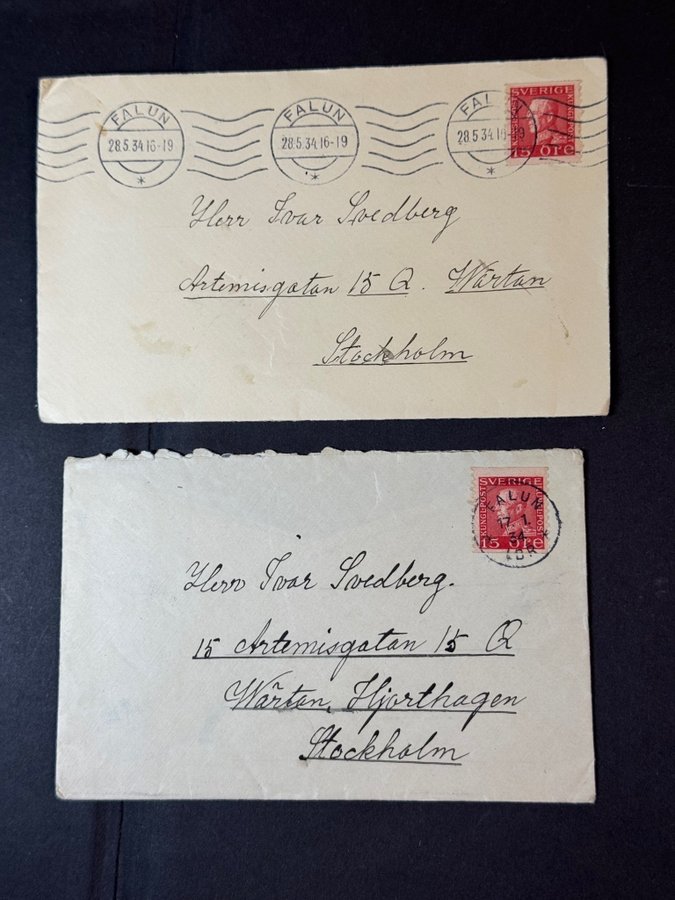 FALUN FALUN FALUN
28.5.34.16-19 28.5.34.16-19 28.5.34.16-19
SVERIGE
15 ÖRE
Herr Ivar Svedberg
Artemisgatan 15 Q. Wärtan
Stockholm
SVERIGE
KUNGL.POST
15 ÖRE
FALUN
17. 1.
34
Herr Ivar Svedberg.
15 Artemisgatan 15 Q
Wärtan, Hjorthagen
Stockholm